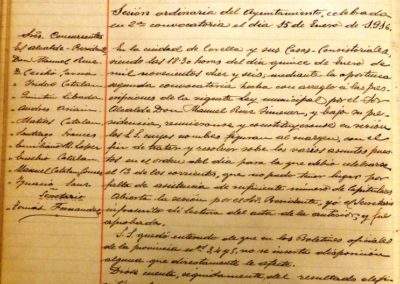 Sesión ordinaria del Ayuntamiento, celebrada
en 2ª convocatoria el dia 15 de Enero de 1916.
Sres. Concurrentes
Sr. Alcalde-Presidente
Don Manuel Ruiz
Andres
Matias Catalan
Santiago Frances
Lopez
Catalan
Manuel Catalan
Ignacio Sanz
Secretario
Tomás Fernandez
En la ciudad de Corella y sus Casas Consistoriales
siendo las 18'30 horas del dia quince de Enero de
mil novecientos diez y seis, mediante la oportuna
segunda convocatoria hecha con arreglo á las pres-
cripciones de la vigente ley municipal por el Sor.
Alcalde Don Manuel Ruiz y bajo su pre-
sidencia, reunieronse y constituyeronse en sesion
los S.S. cuyos nombres figuran al margen, con el
fin de tratar y resolver sobre los varios asuntos pues-
tos en el orden del dia para la que debio celebrarse
el 13 de los corrientes, que no pudo tener lugar por
falta de asistencia de suficiente número de Capitulares.
Abierta la sesión por el Sr. Presidente, yo el Secretario
infrascrito di lectura del acta de la anterior, y fué
aprobada.
S.S. quedó enterado de que en los Boletines oficiales
de la provincia nos. 3, 4 y 5, no se inserta disposicion
alguna que directamente le afecte.
Diose cuenta, seguidamente, del resultado